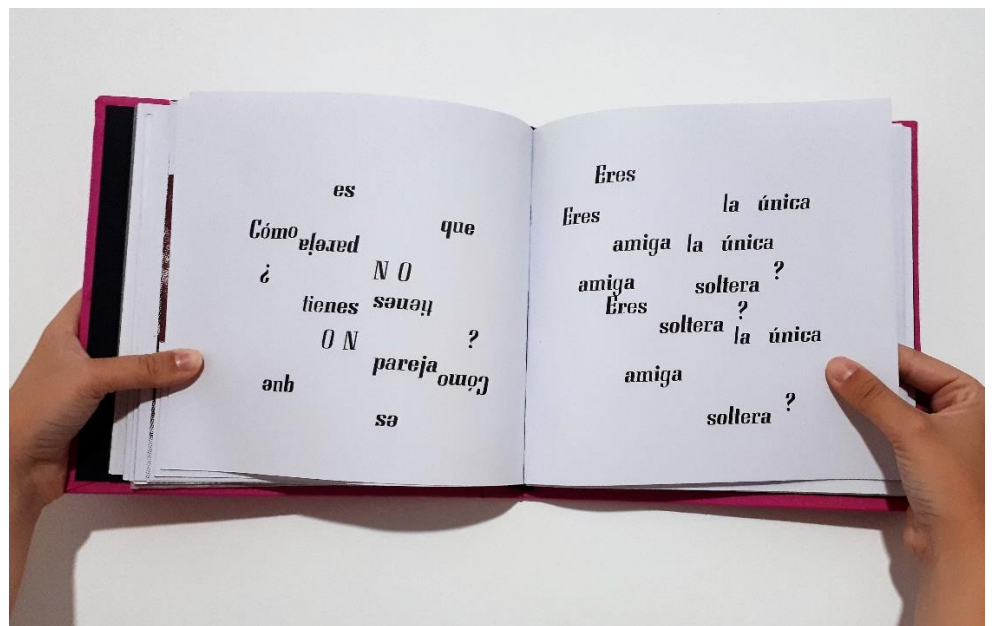 es
que
Cómo pareja
¿ NO
tienes tienes
NO ?
pareja Cómo
que
es
Eres
Eres la única
amiga la única
amiga soltera ?
Eres soltera ?
la única
amiga
soltera ?